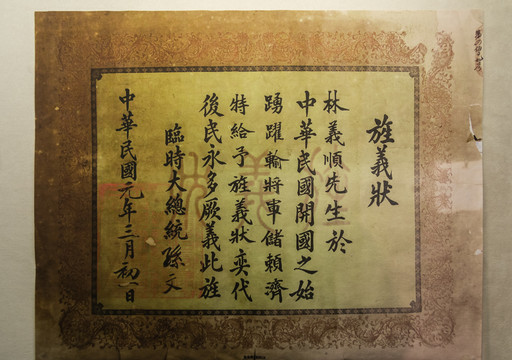 旌義狀
林義順先生於
中華民國開國之始
踴躍輸將軍儲賴濟
特給予旌義狀奕代
後民永多厥義此旌
臨時大總統孫文
中華民國元年三月初八日
旌義狀